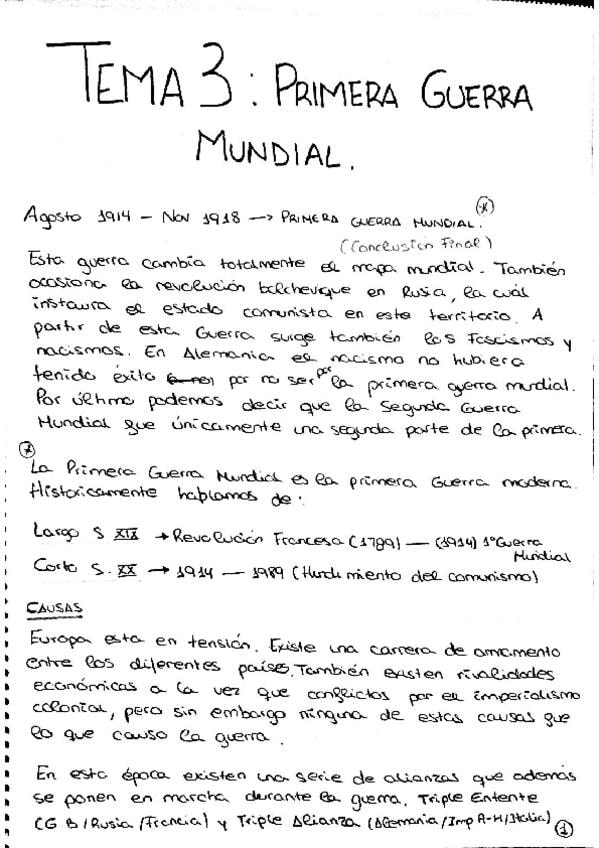 TEMA 3: PRIMERA GUERRA
MUNDIAL.
Agosto 1914 - Nov 1918 -> PRIMERA GUERRA MUNDIAL. (*)
(Conclusión Final)
Esta guerra cambia totalmente el mapa mundial. También
ocasiona la revolución bolchevique en Rusia, la cuál
instaura el estado comunista en este territorio. A
partir de esta Guerra surge también los Fascismos y
nacismos. En Alemania el nacismo no hubiera
tenido éxito por no ser por la primera guerra mundial.
Por último podemos decir que la Segunda Guerra
Mundial gue únicamente una segunda parte de la primera.
(*)
La Primera Guerra Mundial es la primera Guerra moderna.
Históricamente hablamos de:
Largo S XIX → Revolución Francesa (1789) — (1914) 1º Guerra
Mundial
Corto S. XX → 1914 — 1989 (Hundimiento del comunismo)
CAUSAS
Europa esta en tensión. Existe una carrera de armamento
entre los diferentes países. También existen rivalidades
económicas a la vez que conflictos por el imperialismo
colonial, pero sin embargo ninguna de estas causas gue
lo que causo la guerra.
En esta época existen una serie de alianzas que además
se ponen en marcha durante la guerra, Triple Entente
(G B/Rusia/Francia) y Triple Alianza (Alemania/Imp A-H/Italia)
1